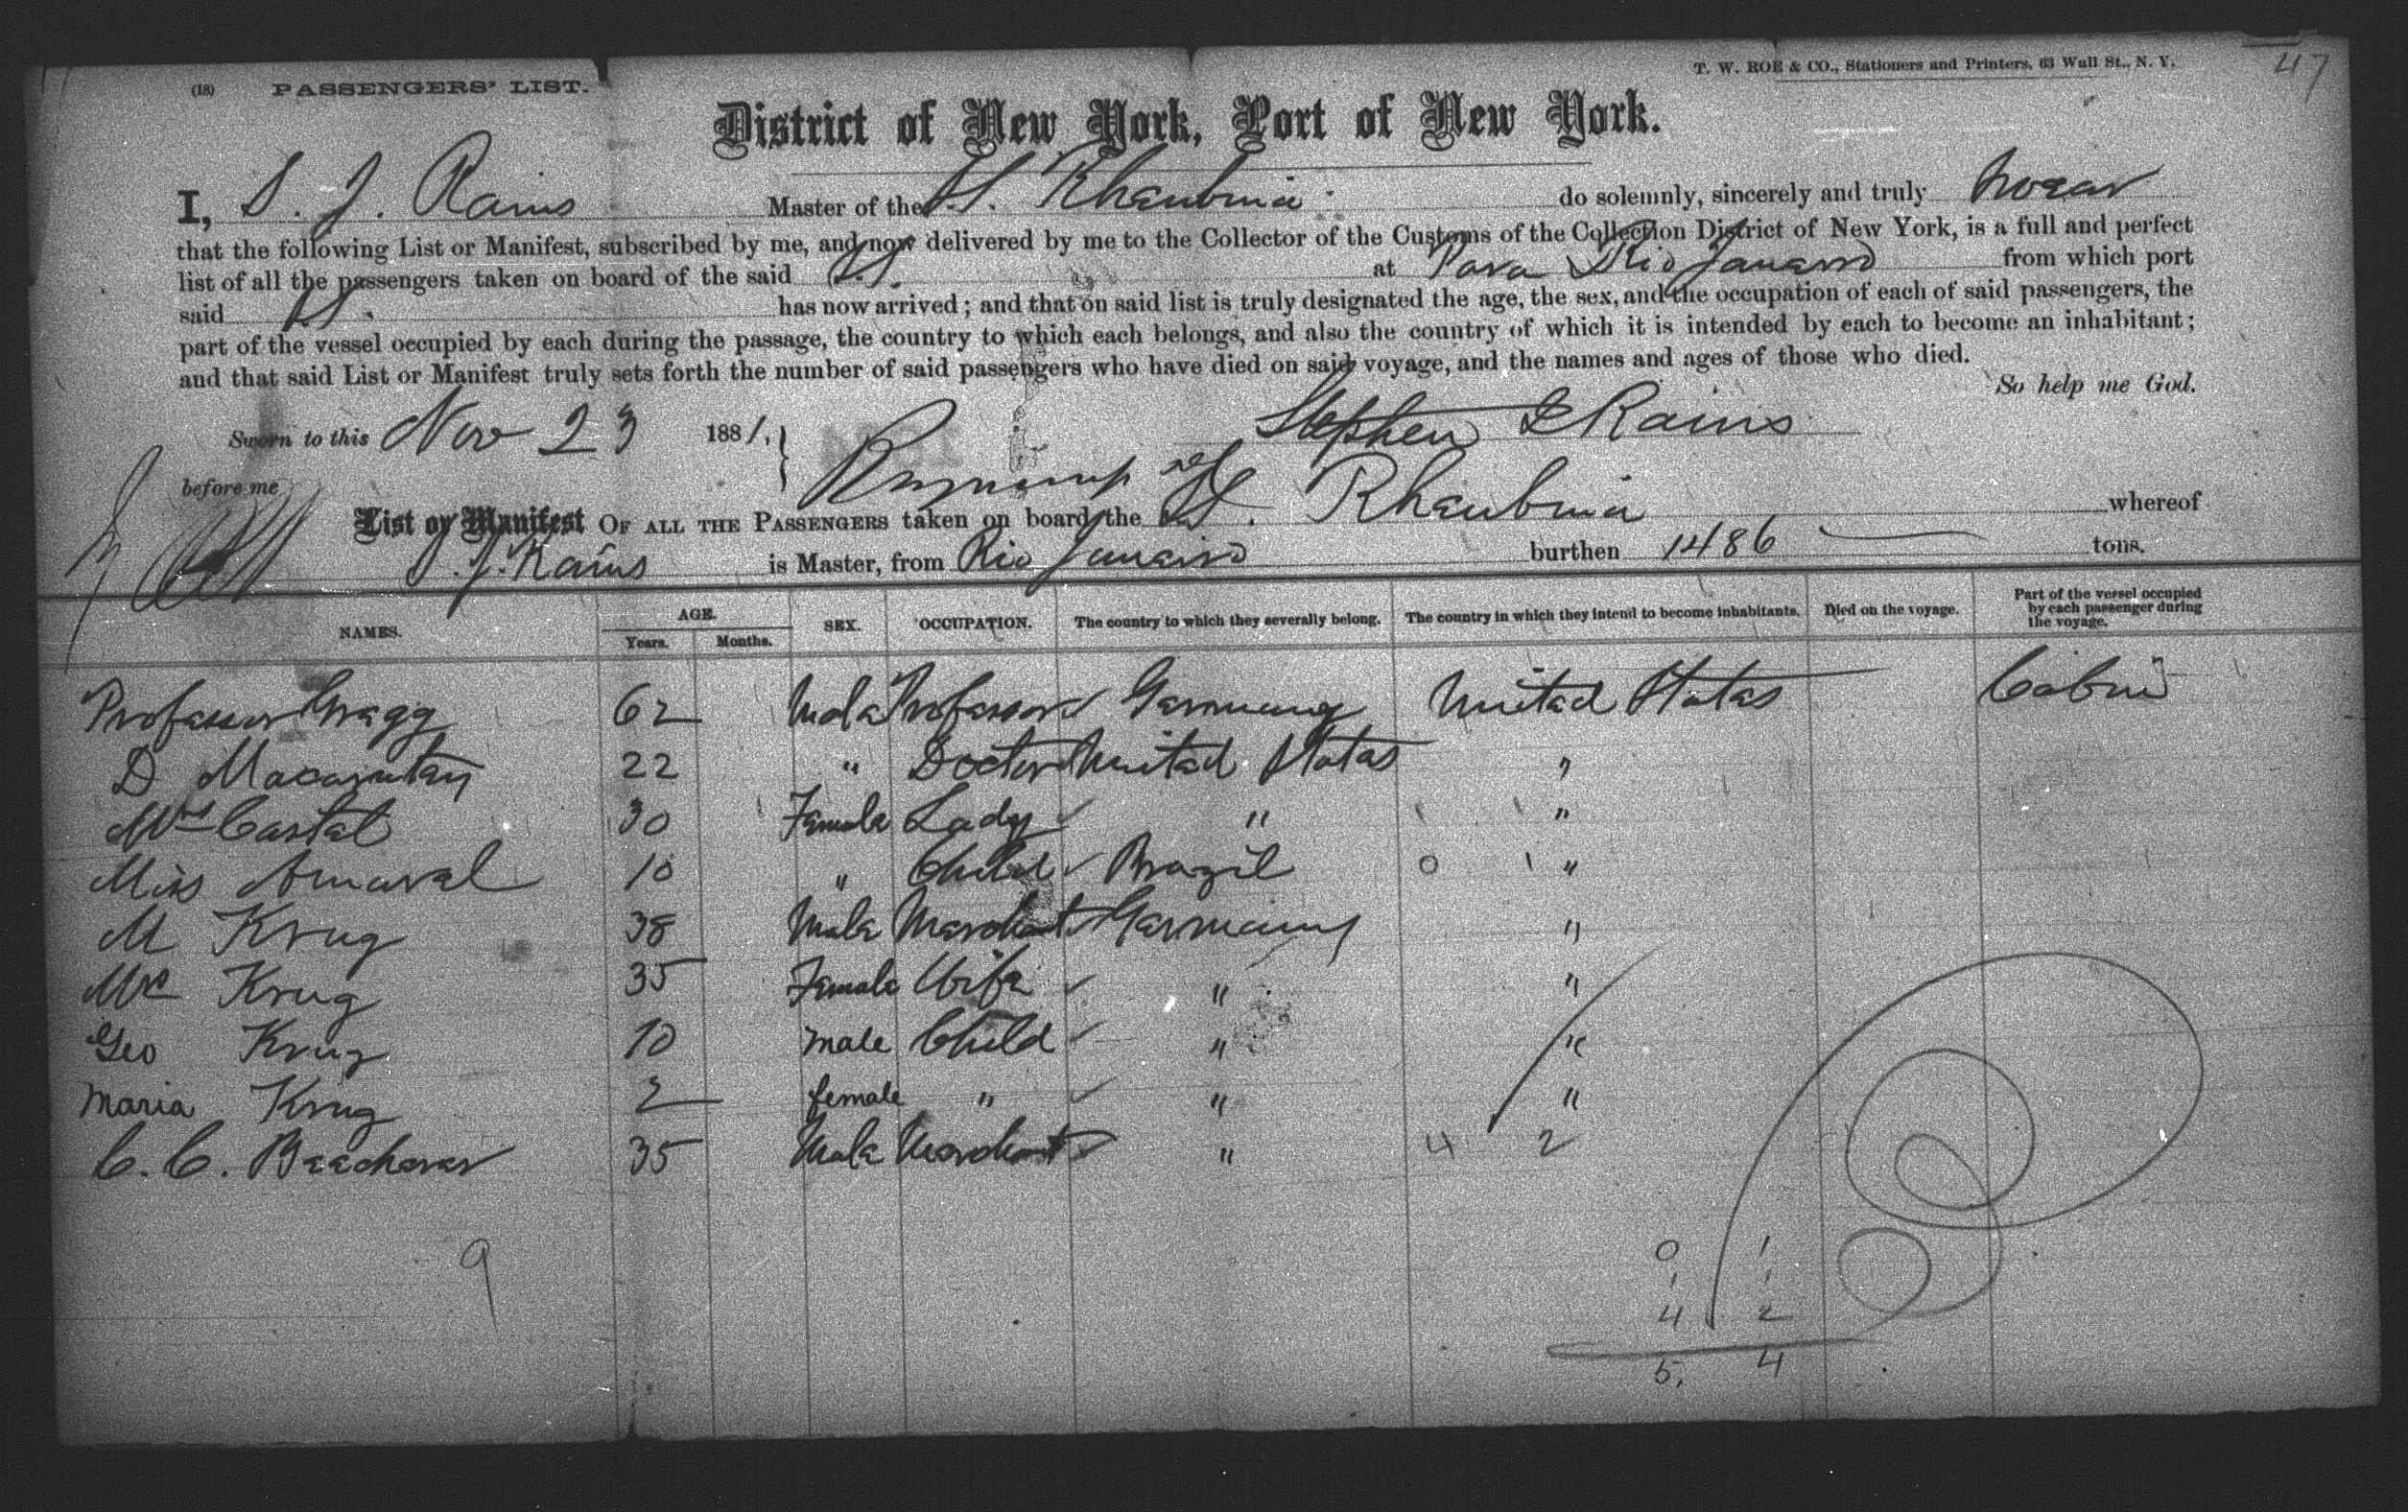 (18) PASSENGERS' LIST.
T. W. ROE & CO., Stationers and Printers, 63 Wall St., N. Y.
47
District of New York, Port of New York.
I, S. J. Rains Master of the do solemnly, sincerely and truly swear
that the following List or Manifest, subscribed by me, and now delivered by me to the Collector of the Customs of the Collection District of New York, is a full and perfect
list of all the passengers taken on board of the said S.S. at Para & Rio Janairo from which port
said S.S. has now arrived; and that on said list is truly designated the age, the sex, and the occupation of each of said passengers, the
part of the vessel occupied by each during the passage, the country to which each belongs, and also the country of which it is intended by each to become an inhabitant;
and that said List or Manifest truly sets forth the number of said passengers who have died on said voyage, and the names and ages of those who died.
So help me God.
Sworn to this Nov 23 1881,
Stephen J Rains
before me
List or Manifest OF ALL THE PASSENGERS taken on board the S.S. whereof
S. J. Rains is Master, from Rio Janairo burthen 1486 tons.
NAMES. AGE. Years. Months. SEX. OCCUPATION. The country to which they severally belong. The country in which they intend to become inhabitants. Died on the voyage. Part of the vessel occupied by each passenger during the voyage.
Professor Gragg 62 Male Professor Germany United States Cabin
D 22 " Doctor United States "
Mrs Castel 30 Female Lady " "
Miss Amaral 10 " Child Brazil 0 1 "
M Krug 38 Male Merchant Germany "
Mrs Krug 35 Female Wife " "
Geo Krug 10 male Child " "
Maria Krug 2 female " " "
C. C. 35 Male Merchant " 4 2
9
0 1
1 1
4 2
5, 4